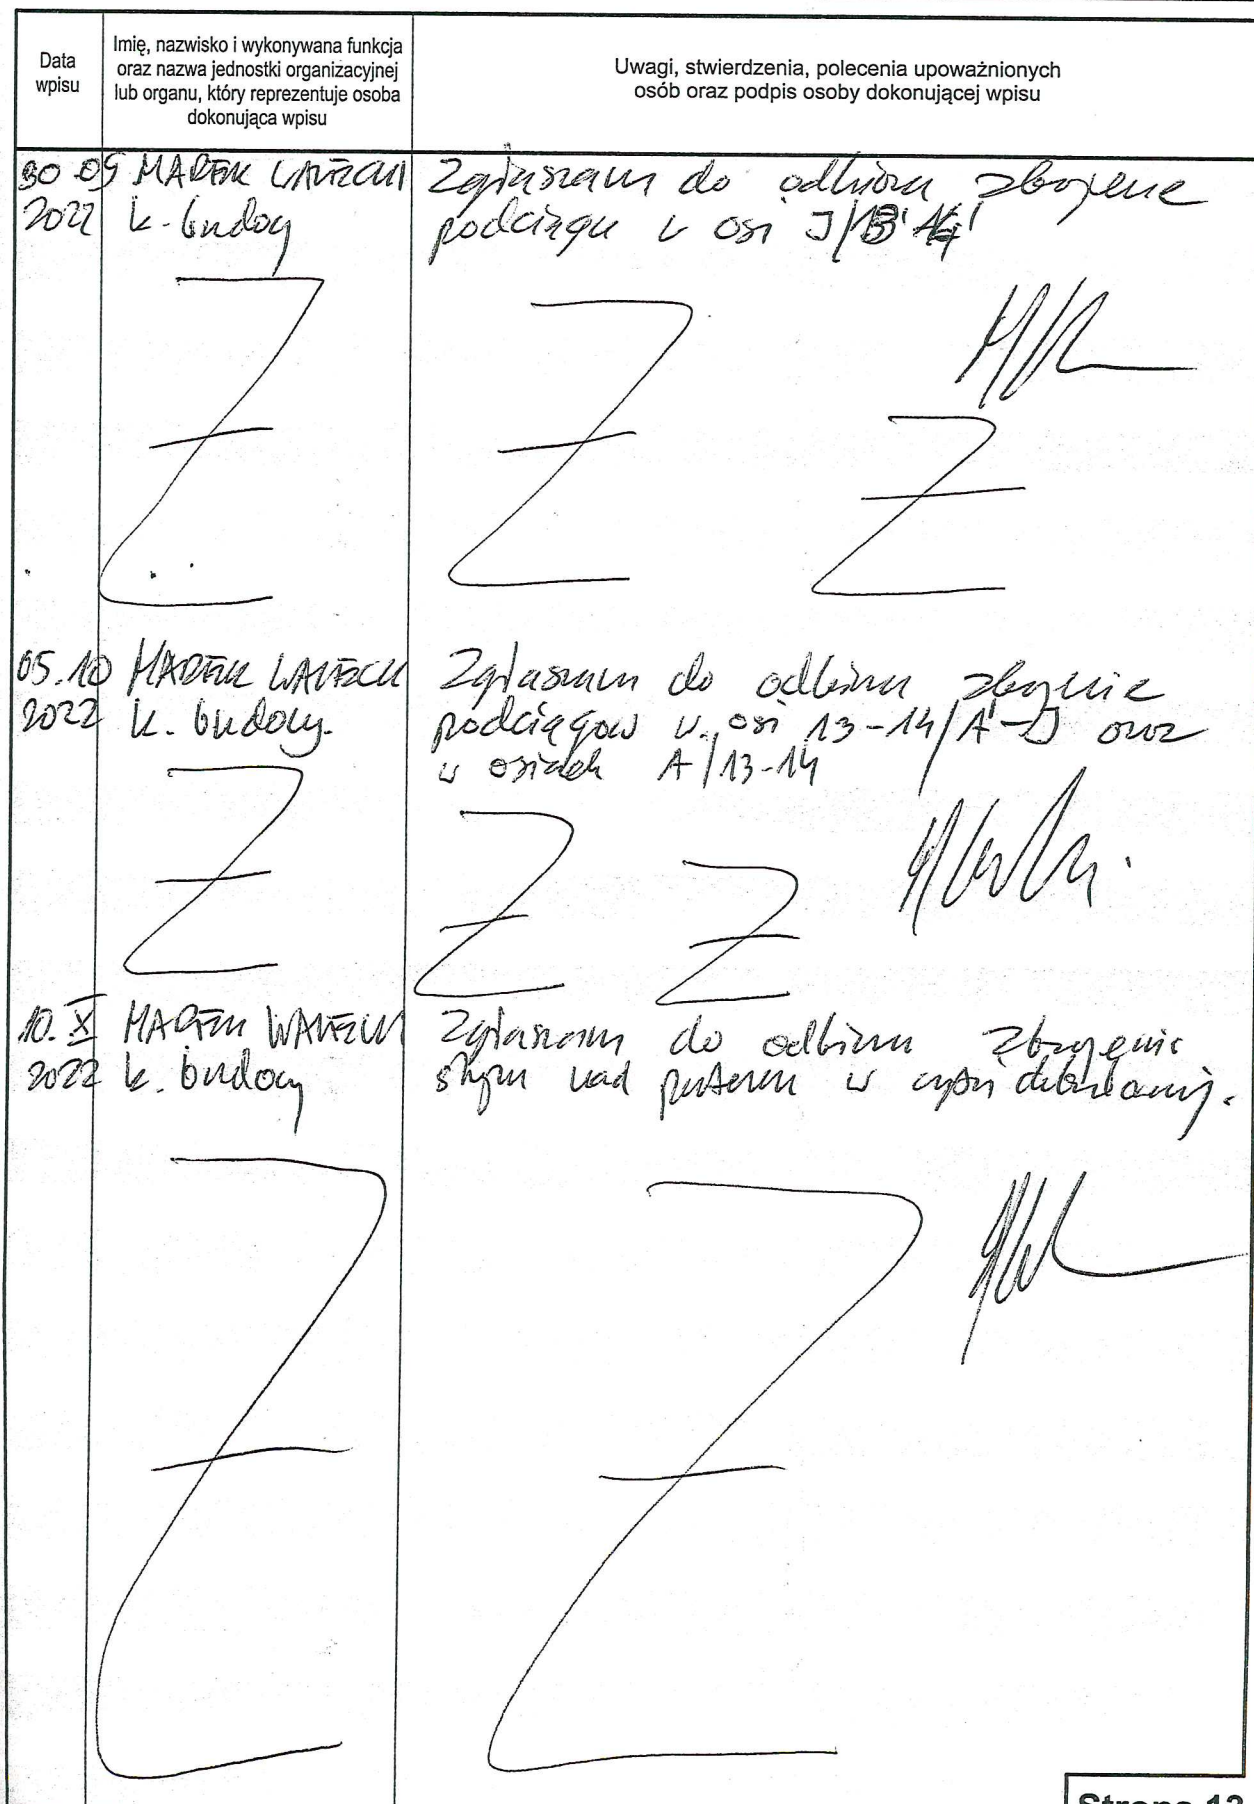 Data
wpisu
Imię, nazwisko i wykonywana funkcja
oraz nazwa jednostki organizacyjnej
lub organu, który reprezentuje osoba
dokonująca wpisu
Uwagi, stwierdzenia, polecenia upoważnionych
osób oraz podpis osoby dokonującej wpisu
30.09
2022
MAREK
k. budowy
Zgłaszam do odbioru zbrojenie
podciągu w osi J/
05.10
2022
MAREK
k. budowy.
Zgłaszam do odbioru zbrojenie
podciągów w osi 13-14/A'-J oraz
w osiach A/13-14
10.X
2022
MAREK
k. budowy
Zgłaszam do odbioru zbrojenie
nad parterem w części
Strona 13